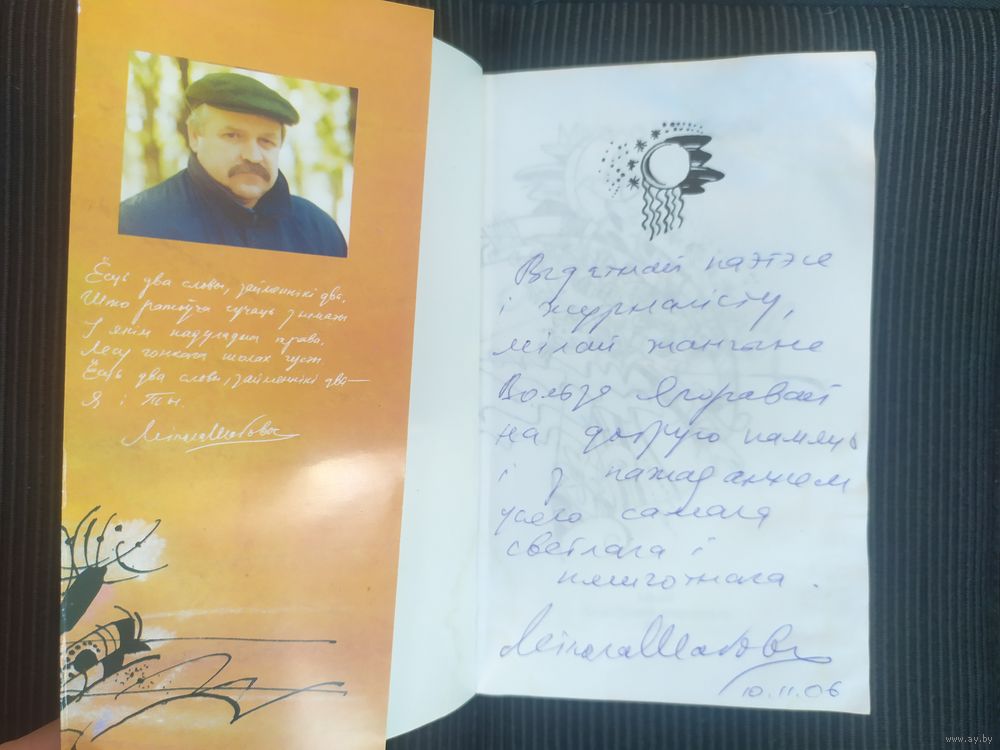 Ёсць два словы, займеннікі два,
Што гучаць з
І якім надуладна права.
Лесу гонкага шолах густы
Ёсць два словы, займеннікі два —
Я і Ты.
Мікола Шабовіч
Выдатнай паэтэсе
і журналісту,
мілай жанчыне
Вользе Ягоравай
на добрую памяць
і з пажаданнем
усяго самага
светлага і
пяшчотнага.
Мікола Шабовіч
10.11.06
www.ay.by